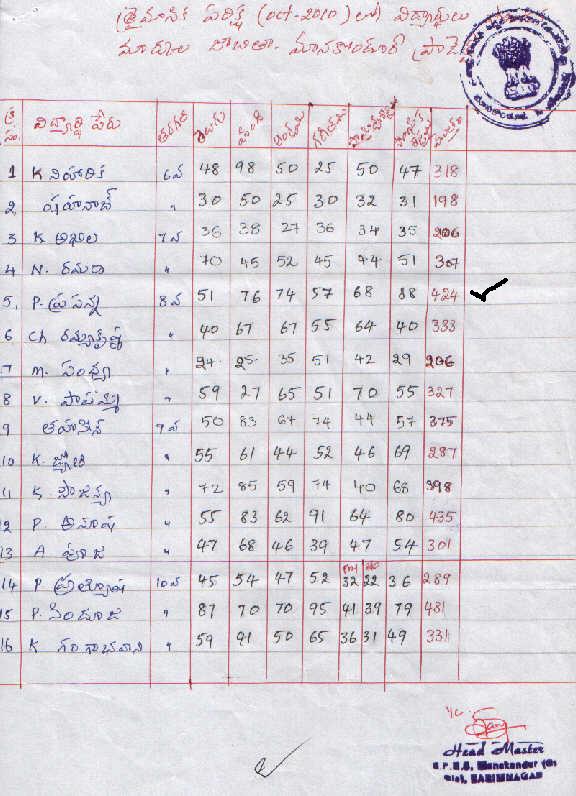 త్రైమాసిక పరీక్ష (oct-2010) లో విద్యార్థులు
మార్కుల జాబితా - మానకొండూర్
క్ర సం. విద్యార్థి పేరు తరగతి తెలుగు హింది ఆంగ్లము గణితము
1 K నిహారిక 6వ 48 98 50 25 50 47 318
2 షహనాజ్ " 30 50 25 30 32 31 198
3 K అఖిల 7వ 36 38 27 36 34 35 206
4 N. రమా " 70 45 52 45 44 51 307
5. P. ప్రసన్న 8వ 51 76 74 57 68 88 424
6 Ch " 40 67 67 55 64 40 333
7 M. సంధ్యా " 24 25 35 51 42 29 206
8 V. పాపమ్మ " 59 27 65 51 70 55 327
9 తహసీన్ 9వ 50 83 67 74 44 57 375
10 K. జ్యోతి " 55 61 44 52 46 69 287
11 K. సౌజన్య " 72 85 59 74 40 68 398
12 P. అనూష " 55 83 62 91 64 80 435
13 A పూజ " 47 68 46 39 47 54 301
14 P ప్రత్యూష 10వ 45 54 47 52 32 22 36 289
15 P. సింధూజ " 87 70 70 95 41 39 79 481
16 K గంగాభవాని " 59 91 50 65 36 31 49 331
Head Master
Manakondur
Dist. KARIMNAGAR